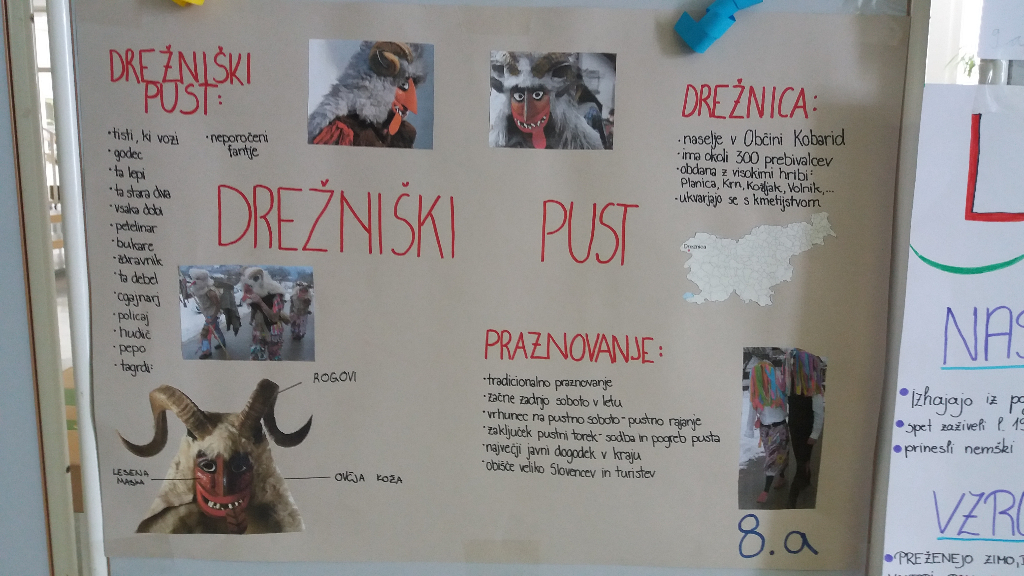 DREŽNIŠKI
PUST:
• tisti, ki vozi
• godec
• ta lepi
• ta stara dva
• vsaka dobi
• petelinar
• bukare
• zdravnik
• ta debel
• cgajnarj
• policaj
• hudič
• pepo
• tagrdi:
• neporočeni
fantje
DREŽNIŠKI PUST
DREŽNICA:
• naselje v Občini Kobarid
• ima okoli 300 prebivalcev
• obdana z visokimi hribi:
Planica, Krn, Kožljak, Volnik,...
• ukvarjajo se s kmetijstvom
Drežnica
ROGOVI
LESENA
MASKA
OVČJA KOŽA
PRAZNOVANJE:
• tradicionalno praznovanje
• začne zadnjo soboto v letu
• vrhunec na pustno soboto - pustno rajanje
• zaključek pustni torek - sodba in pogreb pusta
• največji javni dogodek v kraju
• obišče veliko Slovencev in turistev
8.a
L
NAS
• Izhajajo iz po
• spet zaživeli l. 19
• prinesli nemški
VZRO
• PREŽENEJO ZIMO,